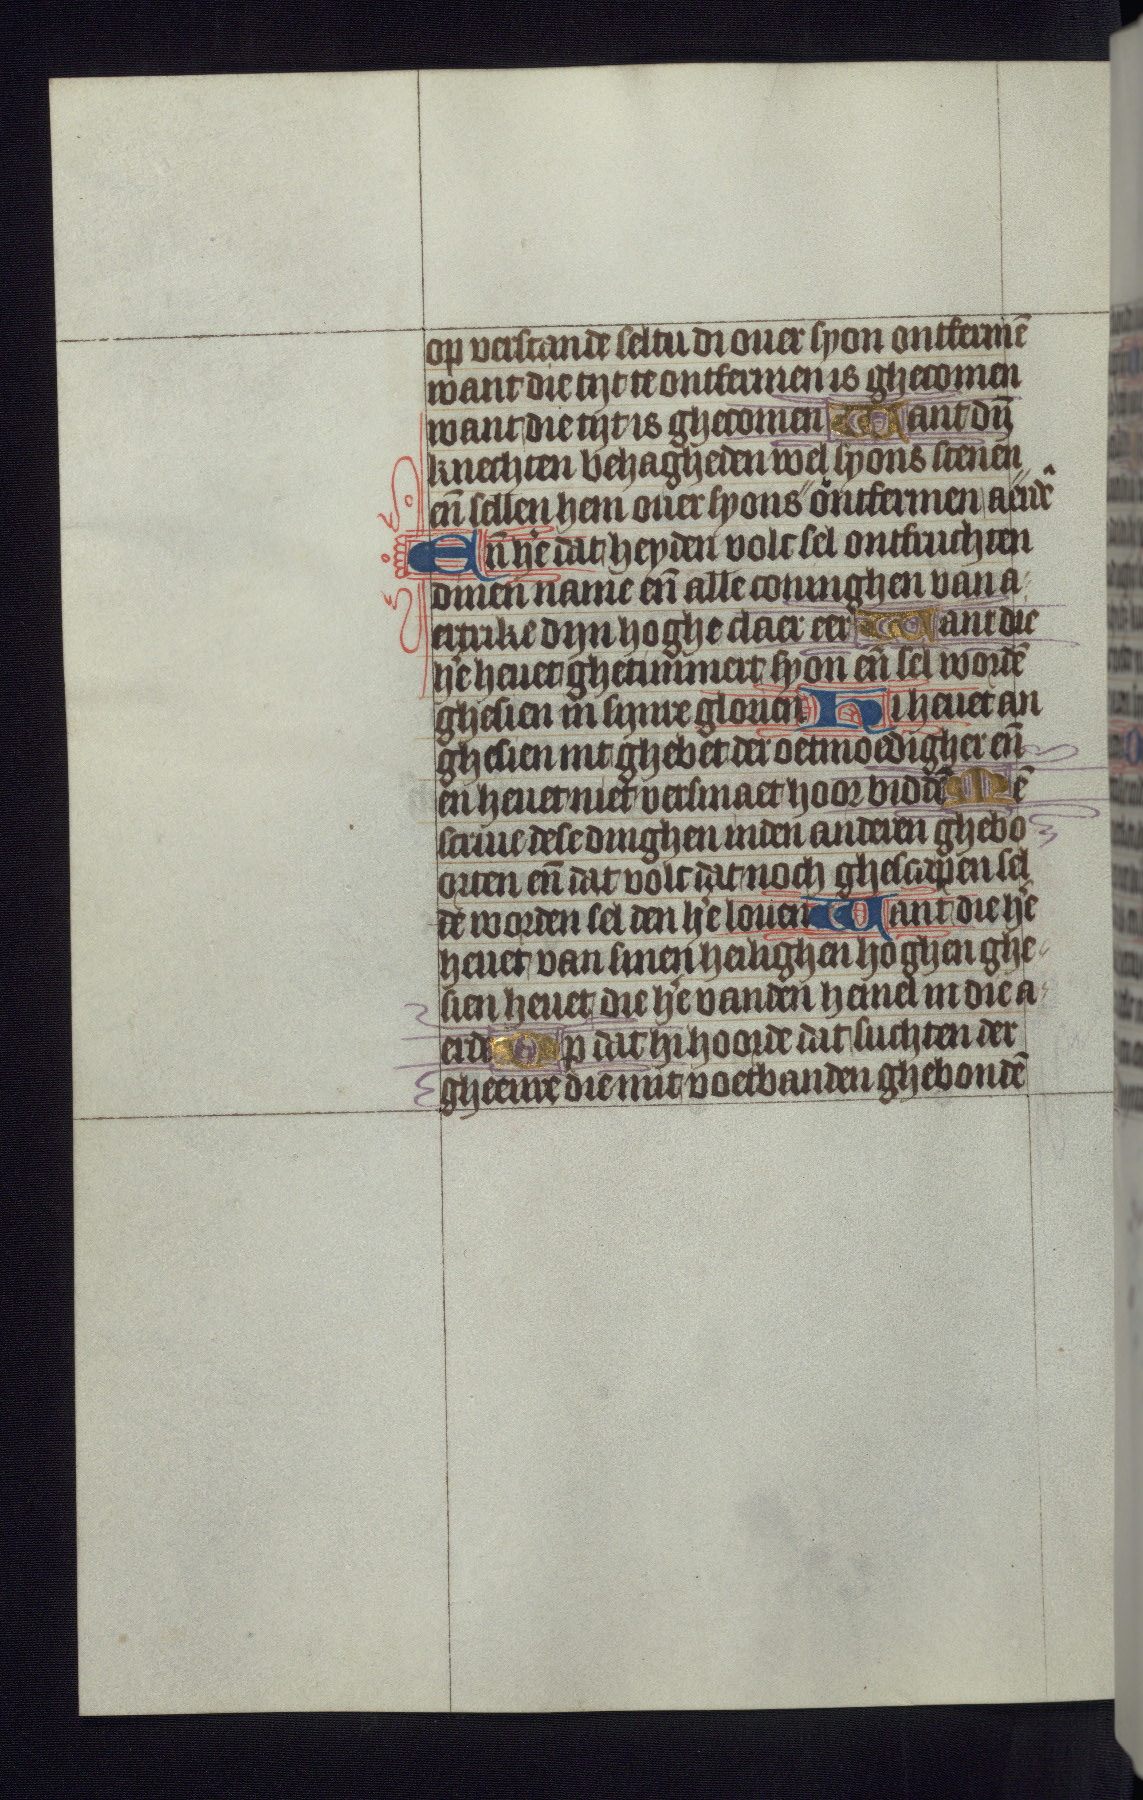 op verstande seltu di ouer syon ontfermē
want die tijt te ontfermen is ghecomen
want die tijt is ghecomen Want dijn
knechten behagheden wel syons stenen
en̄ sellen hem ouer syons ontfermen aerde
En̄ hē dat heyden volc sel ontfruchten
dinen name en̄ alle coninghen van a
ertrike dijn hoghe claer eer Want die
hē heuet ghetimmert syon en̄ sel wordē
ghesien in sijnre glorien Hi heuet an
ghesien int ghebet der oetmoedigher en̄
en heuet niet versmaet hoor biddē Mē
scriue dese dinghen inden anderen ghebo
orten en̄ dat volc dat noch ghescapen sel
de worden sel den hē louen Want die hē
heuet van sinen heilighen hoghen ghe
sien heuet die hē vanden hemel in die a
erde Op dat hi hoorde dat suchten der
gheenre die mit voetbanden ghebondē